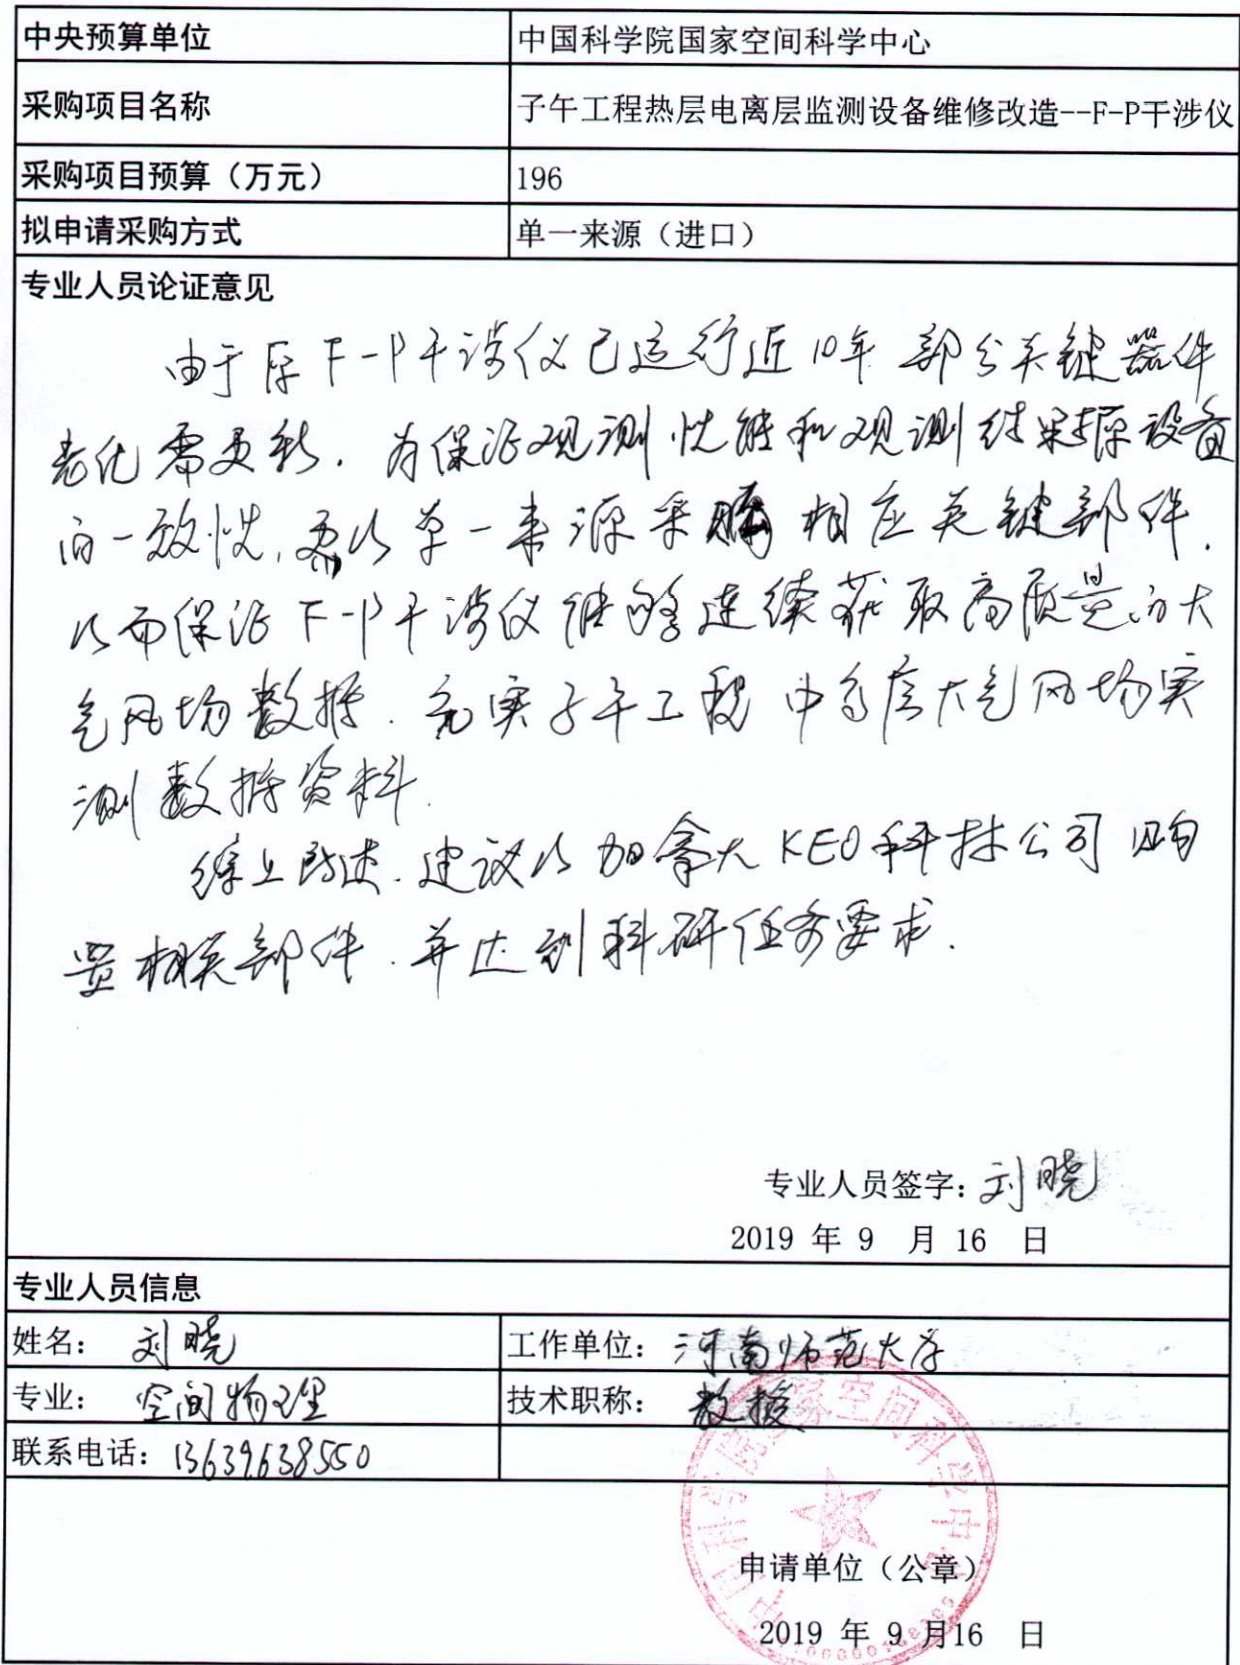 中央预算单位 中国科学院国家空间科学中心
采购项目名称 子午工程热层电离层监测设备维修改造--F-P干涉仪
采购项目预算（万元） 196
拟申请采购方式 单一来源（进口）
专业人员论证意见
由于原F-P干涉仪已运行近10年 部分关键器件
老化需更新. 为保证观测性能和观测结果与原设备
的一致性, 需从单一来源采购相应关键部件.
从而保证F-P干涉仪能够连续获取高质量的大
气风场数据. 充实子午工程中高层大气风场实
测数据资料.
综上所述. 建议从加拿大KEO科技公司购
置相关部件. 并达到科研任务要求.
专业人员签字: 刘晓
2019 年 9 月 16 日
专业人员信息
姓名: 刘晓 工作单位: 河南师范大学
专业: 空间物理 技术职称: 教授
联系电话: 13639638550
中国科学院国家空间科学中心
申请单位（公章）
2019 年 9 月16 日